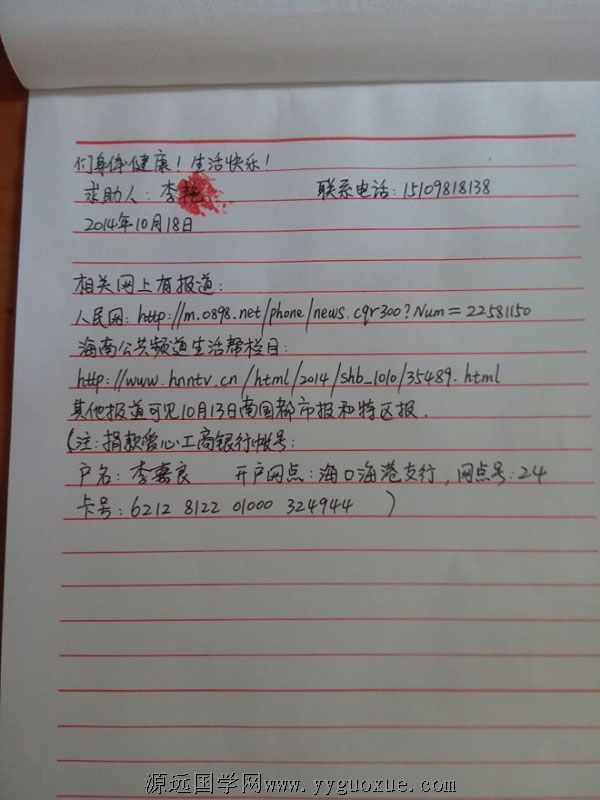 们身体健康！生活快乐！
求助人：李艳 联系电话：15109818138
2014年10月18日
相关网上有报道：
人民网：http://m.0898.net/phone/news.cqr300?Num=22581150
海南公共频道生活帮栏目：
http://www.hnntv.cn/html/2014/shb_1010/35489.html
其他报道可见10月13日南国都市报和特区报.
(注：捐款爱心工商银行帐号：
户名：李嘉良 开户网点：海口海港支行，网点号：24
卡号：6212 8122 01000 324944 )
源远国学网www.yyguoxue.com